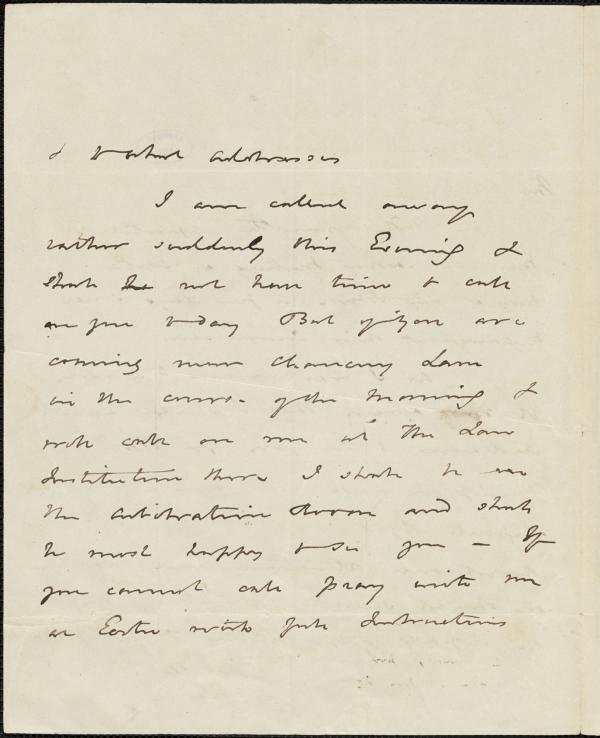 & what addresses
I am called away
rather suddenly this Evening &
shall not have time to call
on you today But if you are
coming near Chancery Lane
in the course of the morning &
will call on me at the Law
Institution there I shall be in
the Arbitration Room and shall
be most happy to see you – If
you cannot call pray write me
a with full Instructions